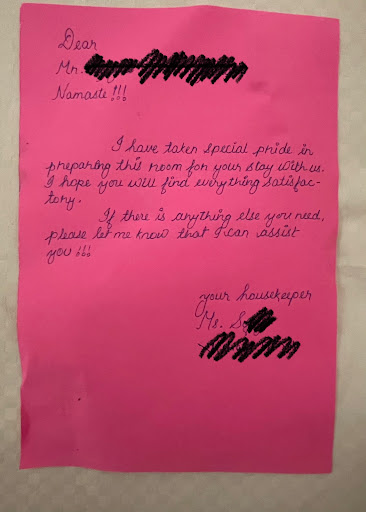 Dear
Mr.
Namaste!!!
I have taken special pride in
preparing this room for your stay with us.
I hope you will find everything satisfac-
tory.
If there is anything else you need,
please let me know that I can assist
you!!!
your housekeeper
Ms. S